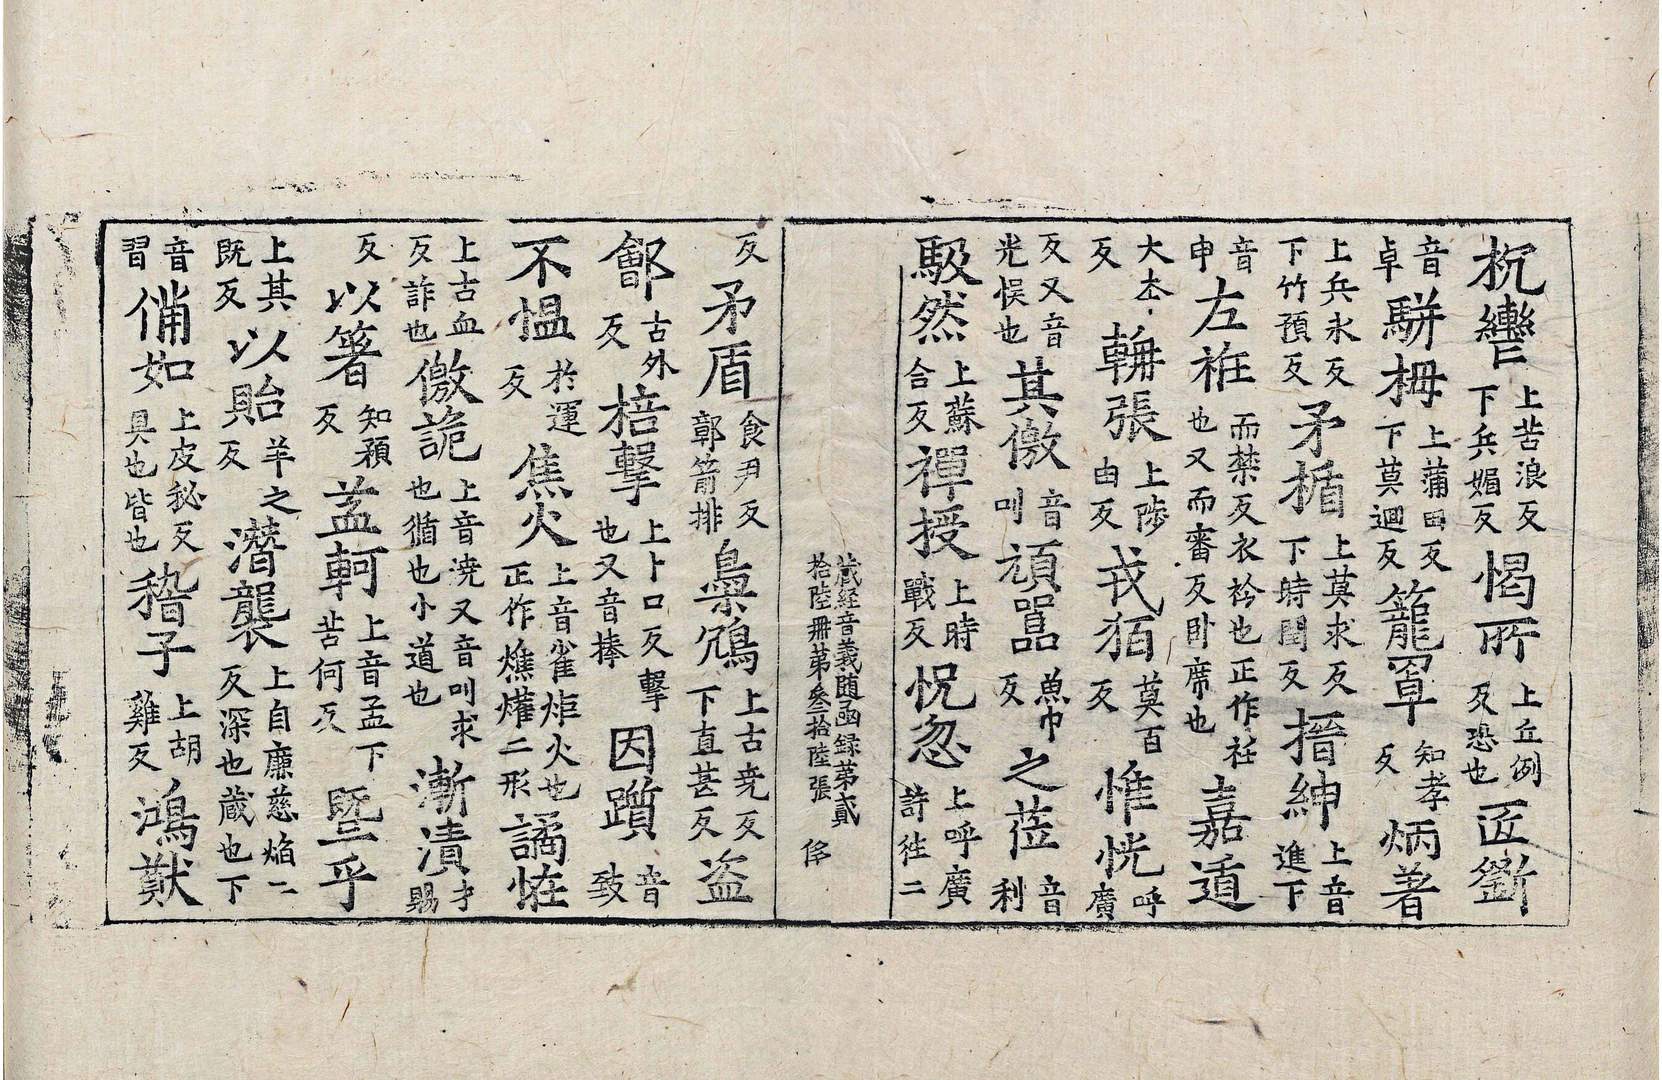 抗轡上苦浪反下兵媚反愒所上丘例反恐也匠斵
音卓駢栂上蒲田反下莫迴反籠罩知孝反炳著
上兵永反下竹預反矛楯上莫求反下時閏反搢紳上音進下
音申左衽而禁反衣衿也正作衽也又而審反卧席也嘉遁
大夲反輈張上陟由反戎狛莫百反惟恍呼廣
反又音光悮也其儌音叫頑嚚魚巾反之莅音利
馺然上蘇合反禪授上時戰反怳忽上呼廣許往二
藏経音義随函録第貳
拾陸冊第叄拾陸張
反矛盾食尹反鄣箭排梟鴆上古尭反下直甚反盗
鄶古外反棓擊上卜口反擊也又音捧因躓音致
不愠於運反焦火上音雀炬火也正作燋爝二形譎恠
上古血反詐也儌詭上音澆又音叫求也循也小道也漸漬才賜
反以箸知頴反孟軻上音孟下苦何反暨乎
上其既反以貽羊之反潛襲上自廉慈焔二反深也蔵也下
音習俻如上皮秘反具也皆也嵇子上胡雞反鴻猷